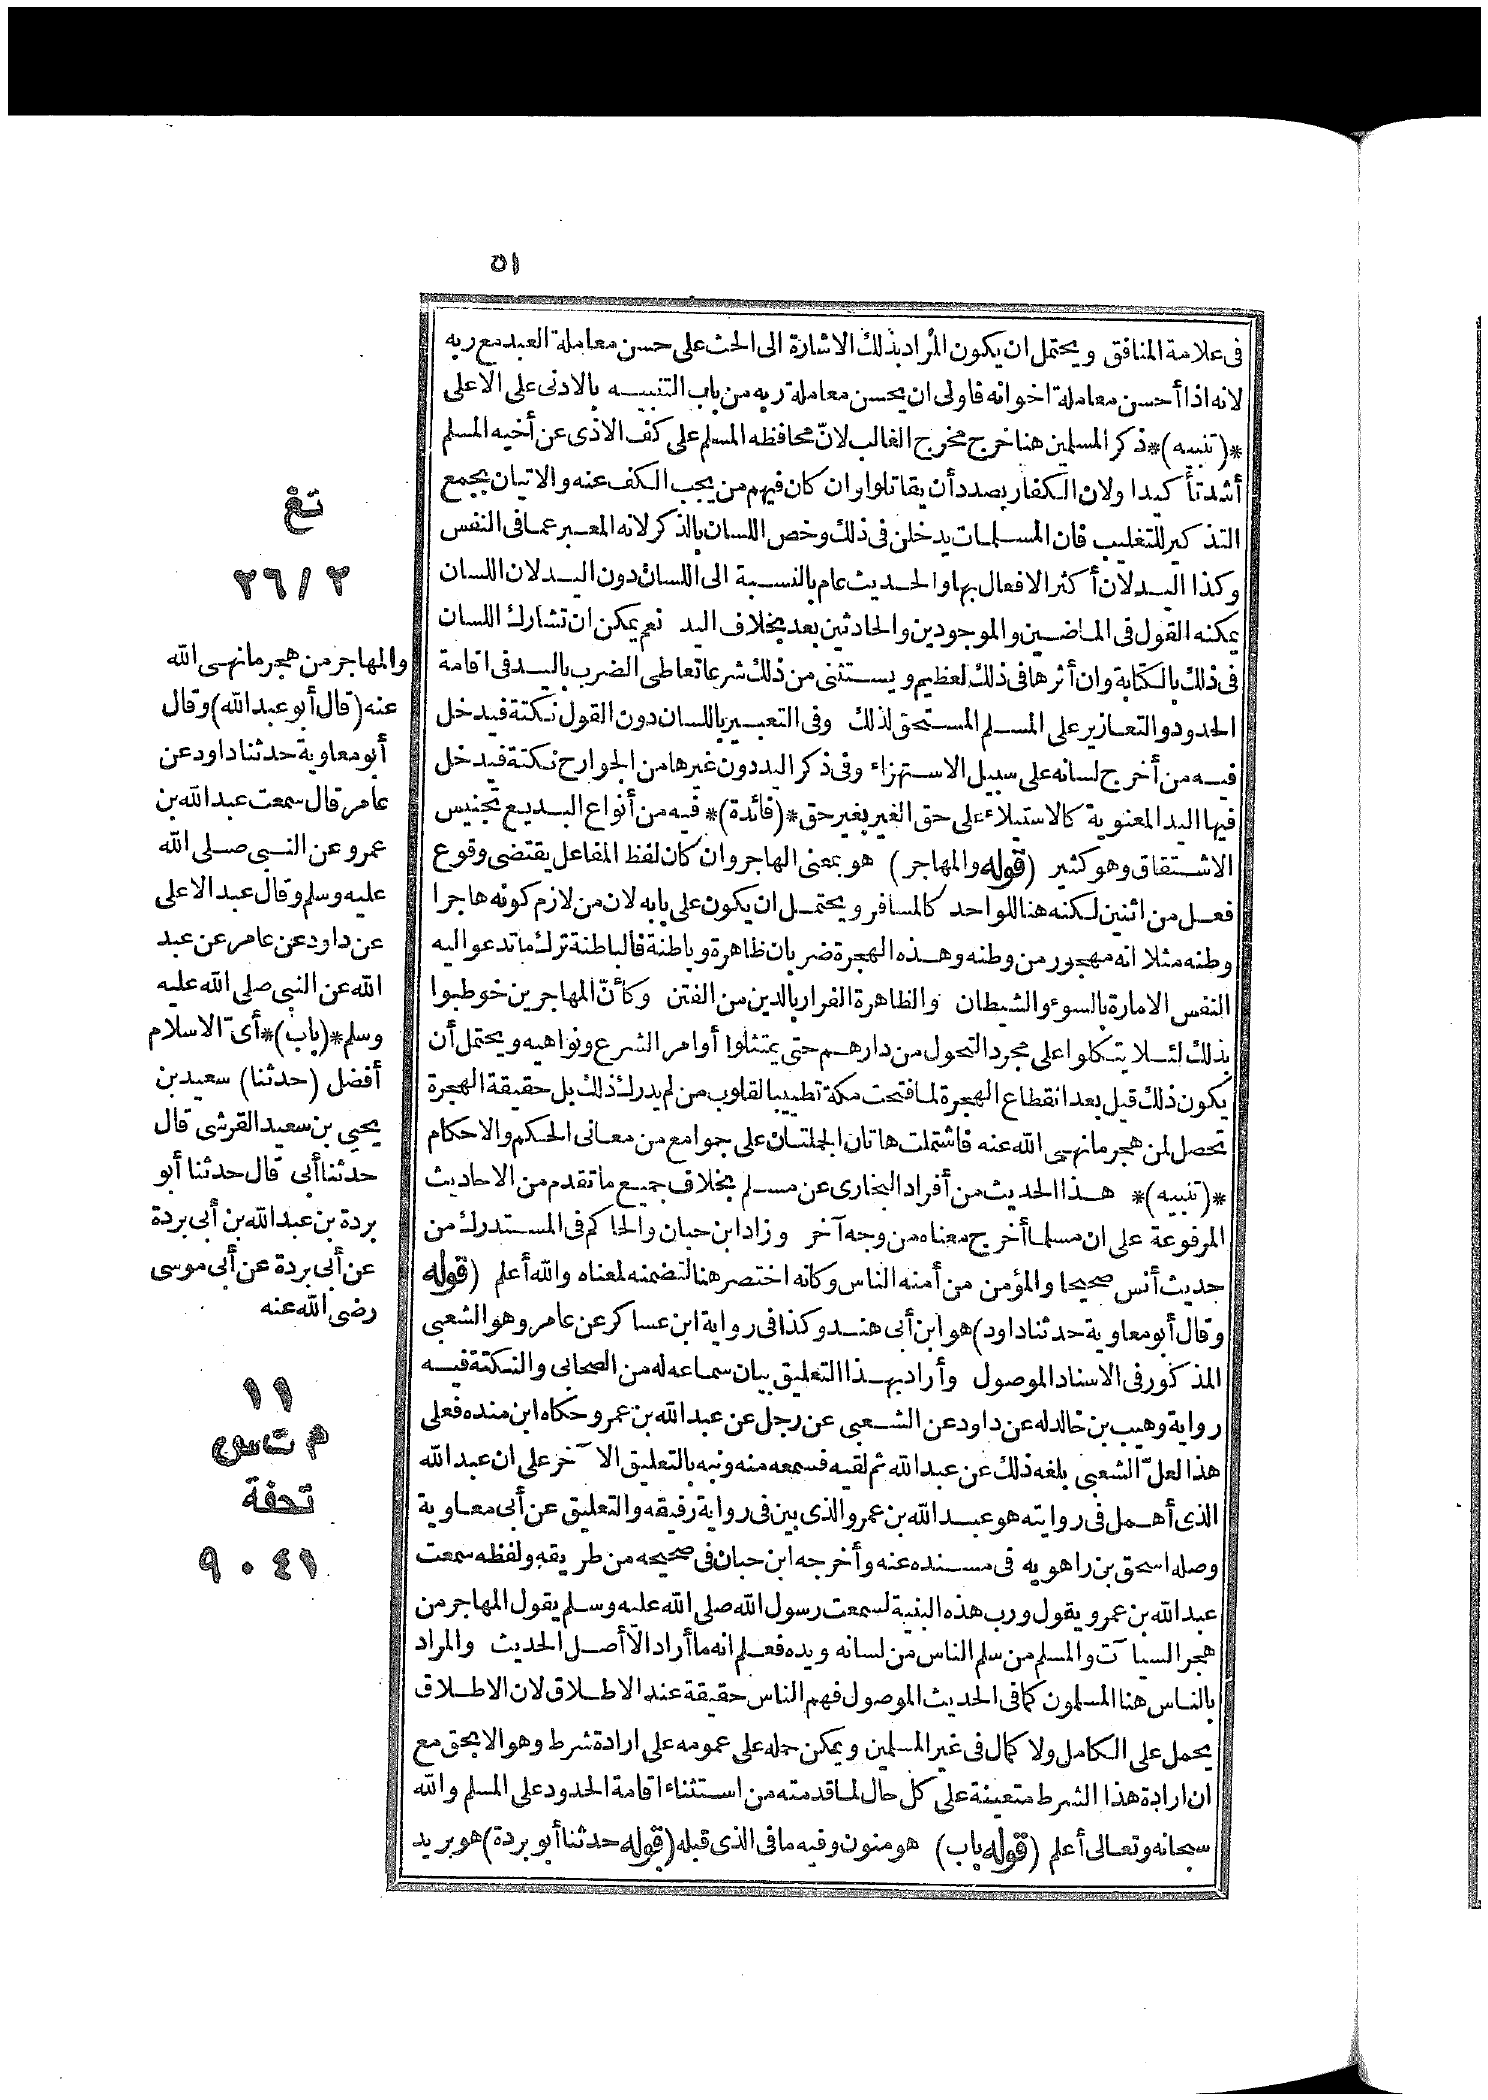 ٥١
فى علامة المنافق ويحتمل ان يكون المراد بذلك الاشارة الى الحث على حسن معاملة العبد مع ربه
لانه اذا أحسن معاملة اخوانه فاولى ان يحسن معاملة ربه من باب التنبيه بالادنى على الاعلى
*(تنبيه)* ذكر المسلمين هنا خرج مخرج الغالب لانّ محافظه المسلم على كف الاذى عن أخيه المسلم
أشد تأكيدا ولان الكفار بصدد أن يقاتلوا وان كان فيهم من يجب الكف عنه والاتيان بجمع
التذكير للتغليب فان المسلمات يدخلن فى ذلك وخص اللسان بالذكر لانه المعبر عما فى النفس
وكذا اليد لان أكثر الافعال بها والحديث عام بالنسبة الى اللسان دون اليد لان اللسان
يمكنه القول فى الماضين والموجودين والحادثين بعد بخلاف اليد نعم يمكن ان تشارك اللسان
فى ذلك بالكتابة وان أثرها فى ذلك لعظيم ويستثنى من ذلك شرعا تعاطى الضرب باليد فى اقامة
الحدود والتعازير على المسلم المستحق لذلك وفى التعبير باللسان دون القول نكتة فيدخل
فيه من أخرج لسانه على سبيل الاستهزاء وفى ذكر اليد دون غيرها من الجوارح نكتة فيدخل
فيها اليد المعنوية كالاستيلاء على حق الغير بغير حق *(فائدة)* فيه من أنواع البديع تجنيس
الاشتقاق وهو كثير (قوله والمهاجر) هو بمعنى الهاجر وان كان لفظ المفاعل يقتضى وقوع
فعل من اثنين لكنه هنا للواحد كالمسافر ويحتمل ان يكون على بابه لان من لازم كونه هاجرا
وطنه مثلا انه مهجور من وطنه وهذه الهجرة ضربان ظاهرة وباطنة فالباطنة ترك ما تدعو اليه
النفس الامارة بالسوء والشيطان والظاهرة الفرار بالدين من الفتن وكأنّ المهاجرين خوطبوا
بذلك لئلا يتكلوا على مجرد التحول من دارهم حتى يمتثلوا أوامر الشرع ونواهيه ويحتمل أن
يكون ذلك قيل بعد انقطاع الهجرة لما فتحت مكة تطييبا لقلوب من لم يدرك ذلك بل حقيقة الهجرة
تحصل لمن هجر ما نهى الله عنه فاشتملت هاتان الجملتان على جوامع من معانى الحكم والاحكام
*(تنبيه)* هذا الحديث من أفراد البخارى عن مسلم بخلاف جميع ما تقدم من الاحاديث
المرفوعة على ان مسلما أخرج معناه من وجه آخر وزاد ابن حبان والحاكم فى المستدرك من
حديث أنس صحيحا والمؤمن من أمنه الناس وكانه اختصر هنا لتضمنه لمعناه والله أعلم (قوله
وقال أبو معاوية حدثنا داود) هو ابن أبى هند وكذا فى رواية ابن عساكر عن عامر وهو الشعبى
المذكور فى الاسناد الموصول وأراد بهذا التعليق بيان سماعه له من الصحابى والنكتة فيه
رواية وهيب بن خالد له عن داود عن الشعبى عن رجل عن عبد الله بن عمرو حكاه ابن منده فعلى
هذا لعلّ الشعبى بلغه ذلك عن عبد الله ثم لقيه فسمعه منه ونبه بالتعليق الآخر على ان عبد الله
الذى أهمل فى روايته هو عبد الله بن عمرو الذى بين فى رواية رفيقه والتعليق عن أبى معاوية
وصله اسحق بن راهويه فى مسنده عنه وأخرجه ابن حبان فى صحيحه من طريقه ولفظه سمعت
عبد الله بن عمرو يقول ورب هذه البنية لسمعت رسول الله صلى الله عليه وسلم يقول المهاجر من
هجر السيآت والمسلم من سلم الناس من لسانه ويده فعلم انه ما أراد الّا أصل الحديث والمراد
بالناس هنا المسلمون كما فى الحديث الموصول فهم الناس حقيقة عند الاطلاق لان الاطلاق
يحمل على الكامل ولا كمال فى غير المسلمين ويمكن حمله على عمومه على ارادة شرط وهو الا بحق مع
ان ارادة هذا الشرط متعينة على كل حال لما قدمته من استثناء اقامة الحدود على المسلم والله
سبحانه وتعالى أعلم (قوله باب) هو منون وفيه ما فى الذى قبله (قوله حدثنا أبو بردة) هو بريد
تغ
٢٦/٢
والمهاجر من هجر ما نهى الله
عنه (قال أبو عبد الله) وقال
أبو معاوية حدثنا داود عن
عامر قال سمعت عبد الله بن
عمرو عن النبى صلى الله
عليه وسلم وقال عبد الاعلى
عن داود عن عامر عن عبد
الله عن النبى صلى الله عليه
وسلم *(باب)* أىّ الاسلام
أفضل (حدثنا) سعيد بن
يحيى بن سعيد القرشى قال
حدثنا أبى قال حدثنا أبو
بردة بن عبد الله بن أبى بردة
عن أبى بردة عن أبى موسى
رضى الله عنه
١١
م ت س
تحفة
٩٠٤١